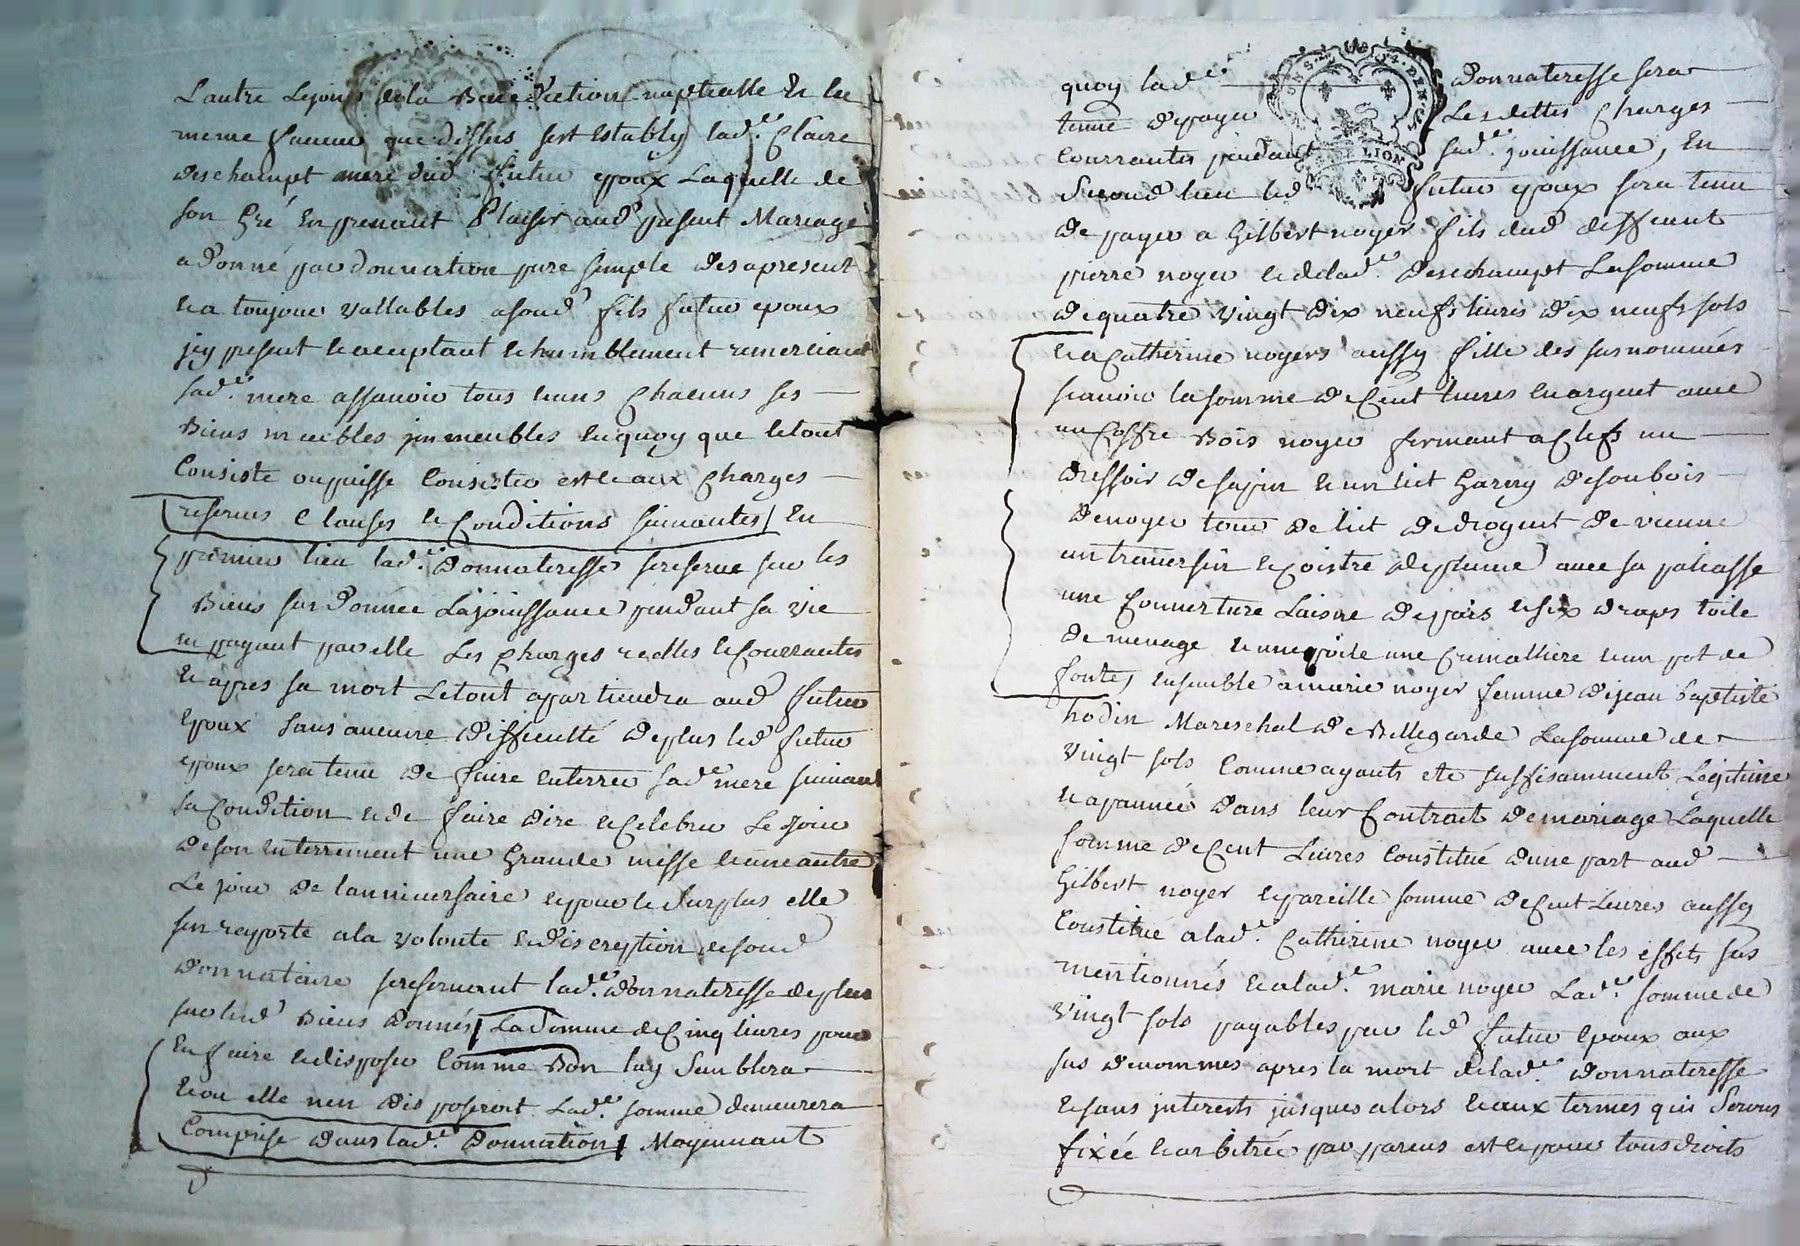 Lautre Lejour dela Benediction nuptialle Et la
meme faveur que dessus sest establÿ lad.e Claire
deschampt mere dud futur epoux Laquelle de
son Gré En prenant Plaisir aud present Mariage
a donné par donnation pure simple des apresent
et a toujour vallables asond fils futur epoux
jcy present et acceptant et humblement remerciant
sad.e mere assavoir tous et uns Chacuns ses
Biens meubles jmmeubles en quoy que le tout
Consiste ou puisse Consister est et aux Charges
reserves Clauses et Conditions suivantes En
premier lieu lad.e Donnateresse se reserve sur les
Biens sus donnée La jouissance pendant sa vie
en payant par elle Les Charges reelles et Courrantes
Et apres sa mort Le tout apartiendra aud futur
Epoux sans aucune difficulté de plus led futur
epoux sera tenu de faire enterrer sad.e mere suivant
sa Condition et de faire dire et Celebrer Le jour
de son enterrement une Grande messe et une autre
Le jour de lanniversaire et pour le surplus elle
sen raporte a la volonte et discreption de sond
donnataire se reservant lad.e donnateresse de plus
sur lesd Biens donnés La Somme de Cinq livres pour
En faire et disposer Comme Bon luy Semblera
et ou elle nen disposeroit Lad.e somme demeurera
Comprise dans lad.e Donnation Moyennant
quoy lad.e donnateresse sera
tenue de payer Les dettes Charges
Courrantes pendant sad.e jouissance, En
Second lieu led futur epoux sera tenu
de payer a Gilbert noyer fils dud deffunt
pierre noyer et delad.e deschampt La somme
de quatre vingt dix neufs livres dix neufs sols
et a Catherine noyers aussy fille des susnommés
scavoir la somme de Cent livres en argent avec
un Coffre Bois noyer fermant a Clefs un
dressoir de sapin et un lict Garny de son bois
de noyer tour de lict de droguet de vienne
un traversin et Coistre de plume avec sa paliasse
une Couverture Laisne de païs et six draps toile
de menage et une poile une Cremaliere et un pot de
fonte, ensemble a marie noyer femme de jean baptiste
hodin Mareschal de Bellegarde La somme de
vingt sols Comme ayants ete suffisamment Legitimé
et apannée dans leur Contract de mariage Laquelle
somme de Cent Livres Constitué dune part aud
Gilbert noyer et pareille somme de Cent Livres aussy
Constitué a lad.e Catherine noyer avec les effets sus
mentionnés et a lad.e marie noyer Lad.e somme de
vingt sols payables par led futur Epoux aux
sus denommes apres la mort delad.e donnateresse
et sans jnterests jusques alors et aux termes qui Seront
fixée et arbitrée par parens est et pour tous droits